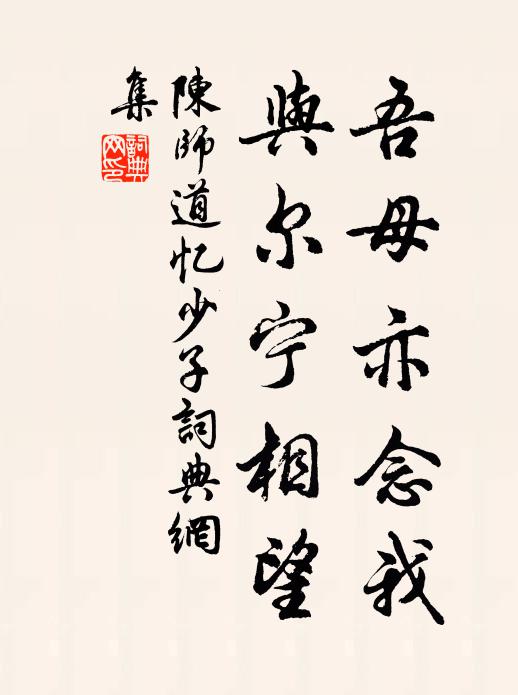 吾毋亦念我
與尔宁相望
陳師道忆少子詞典網
集
詞典
网印